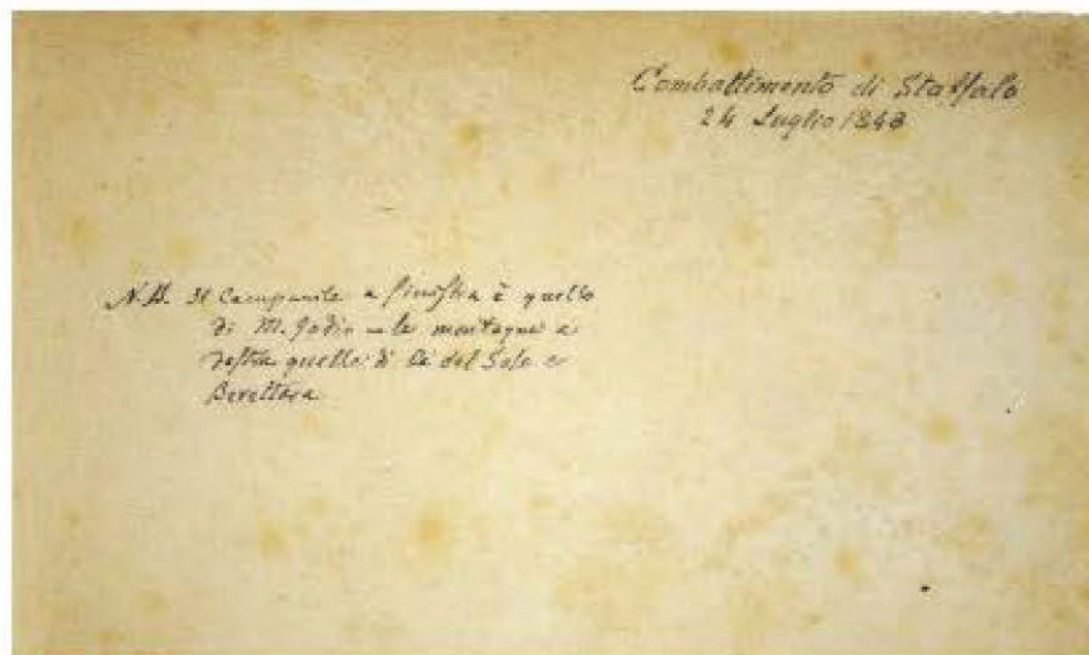 Combattimento di Staffalo
24 Luglio 1848
N.B. Il Campanile a sinistra è quello
di M. Godio - le montagne a
destra quelle di Ca del Sole e
Berettara